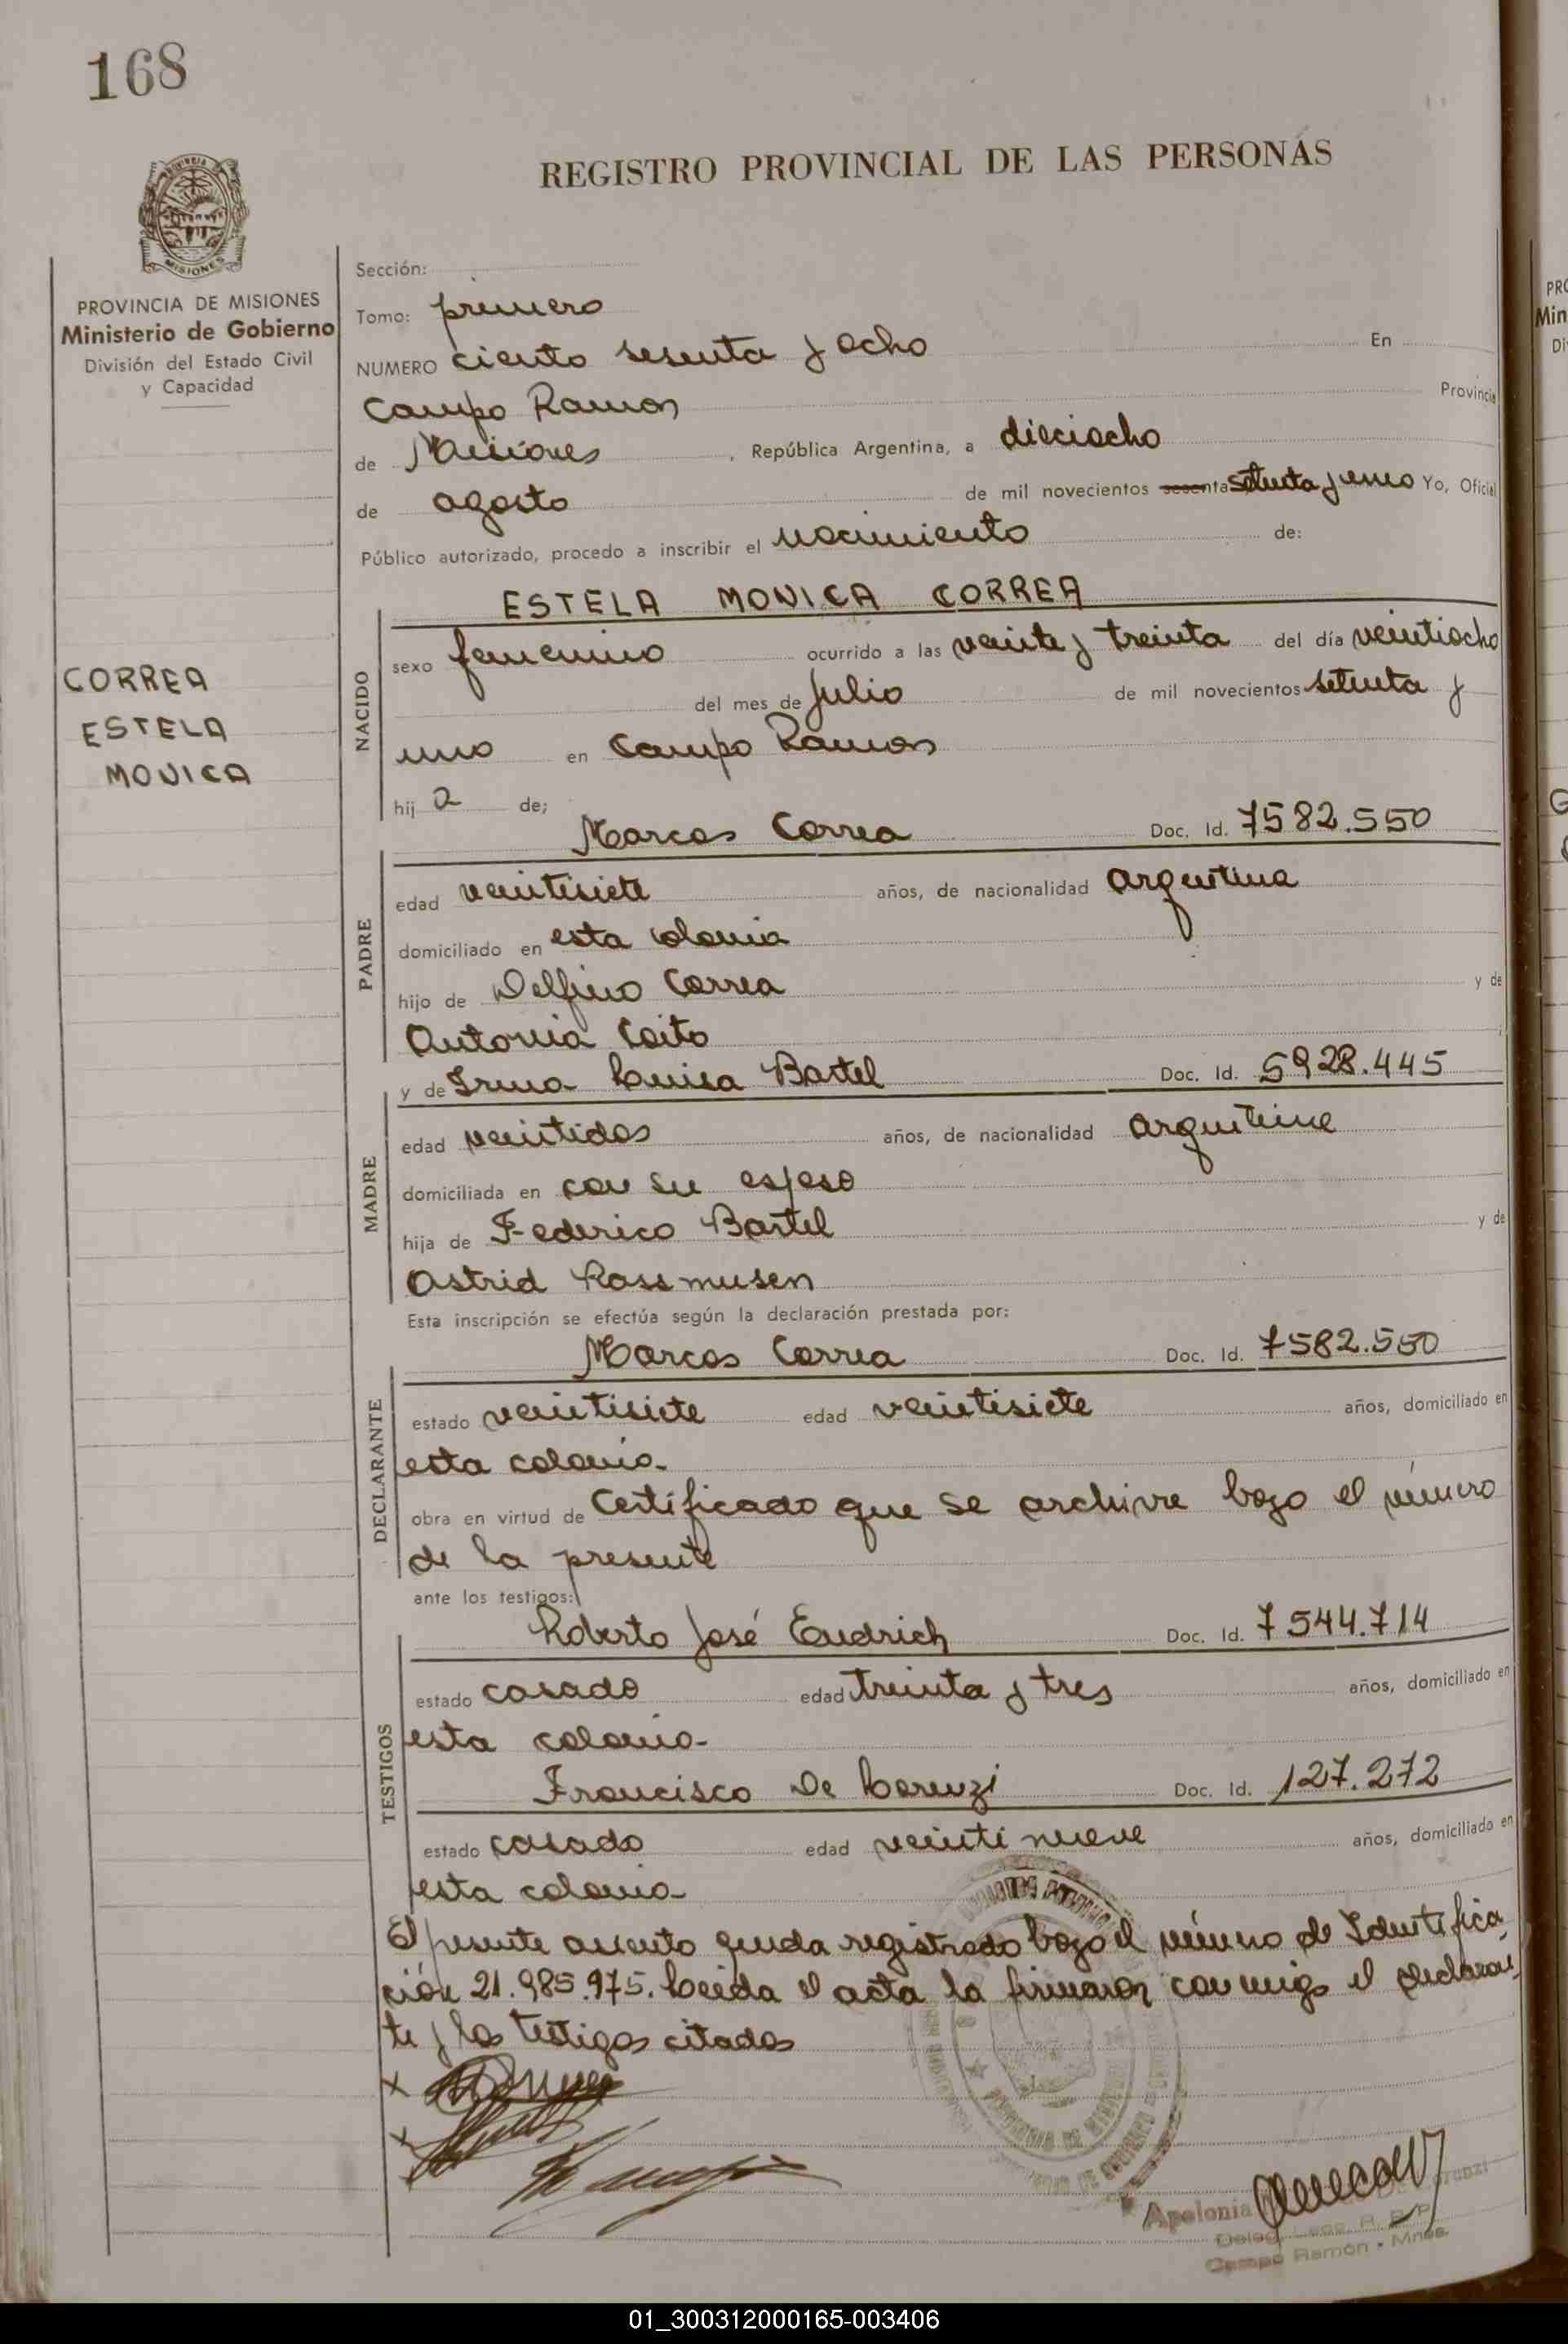 168
REGISTRO PROVINCIAL DE LAS PERSONAS
MISIONES
PROVINCIA DE MISIONES
Ministerio de Gobierno
División del Estado Civil
y Capacidad
CORREA
ESTELA
MONICA
Sección:
Tomo: primero
NUMERO ciento sesenta y ocho En
Campo Ramon Provincia
de Misiones, República Argentina, a dieciocho
de agosto de mil novecientos sesenta setenta y uno Yo, Oficial
Público autorizado, procedo a inscribir el nacimiento de:
ESTELA MONICA CORREA
NACIDO
sexo femenino ocurrido a las veinte y treinta del día veintiocho
del mes de Julio de mil novecientos setenta y
uno en Campo Ramon
hij a de;
Marcos Correa Doc. Id. 7582.550
PADRE
edad veintisiete años, de nacionalidad argentina
domiciliado en esta colonia
hijo de Delfino Correa y de
Antonia Coito
y de Irma Luisa Bartel Doc. Id. 5928.445
MADRE
edad veintidos años, de nacionalidad argentina
domiciliada en con su esposo
hija de Federico Bartel y de
Astrid Rossmusen
Esta inscripción se efectúa según la declaración prestada por:
Marcos Correa Doc. Id. 7582.550
DECLARANTE
estado veintisiete edad veintisiete años, domiciliado en
esta colonia
obra en virtud de Certificado que se archive bajo el número
de la presente
ante los testigos:
Roberto José Endrich Doc. Id. 7544.714
TESTIGOS
estado casado edad treinta y tres años, domiciliado en
esta colonia
Francisco De Lorenzi Doc. Id. 127.272
estado casado edad veinti nueve años, domiciliado en
esta colonia
El presente asiento queda registrado bajo el número de Identifica
ción 21.985.975. Leida el acta la firmaron conmigo el declaran
te y los testigos citados
Apolonia
Campo Ramón - Mnes.
01_300312000165-003406